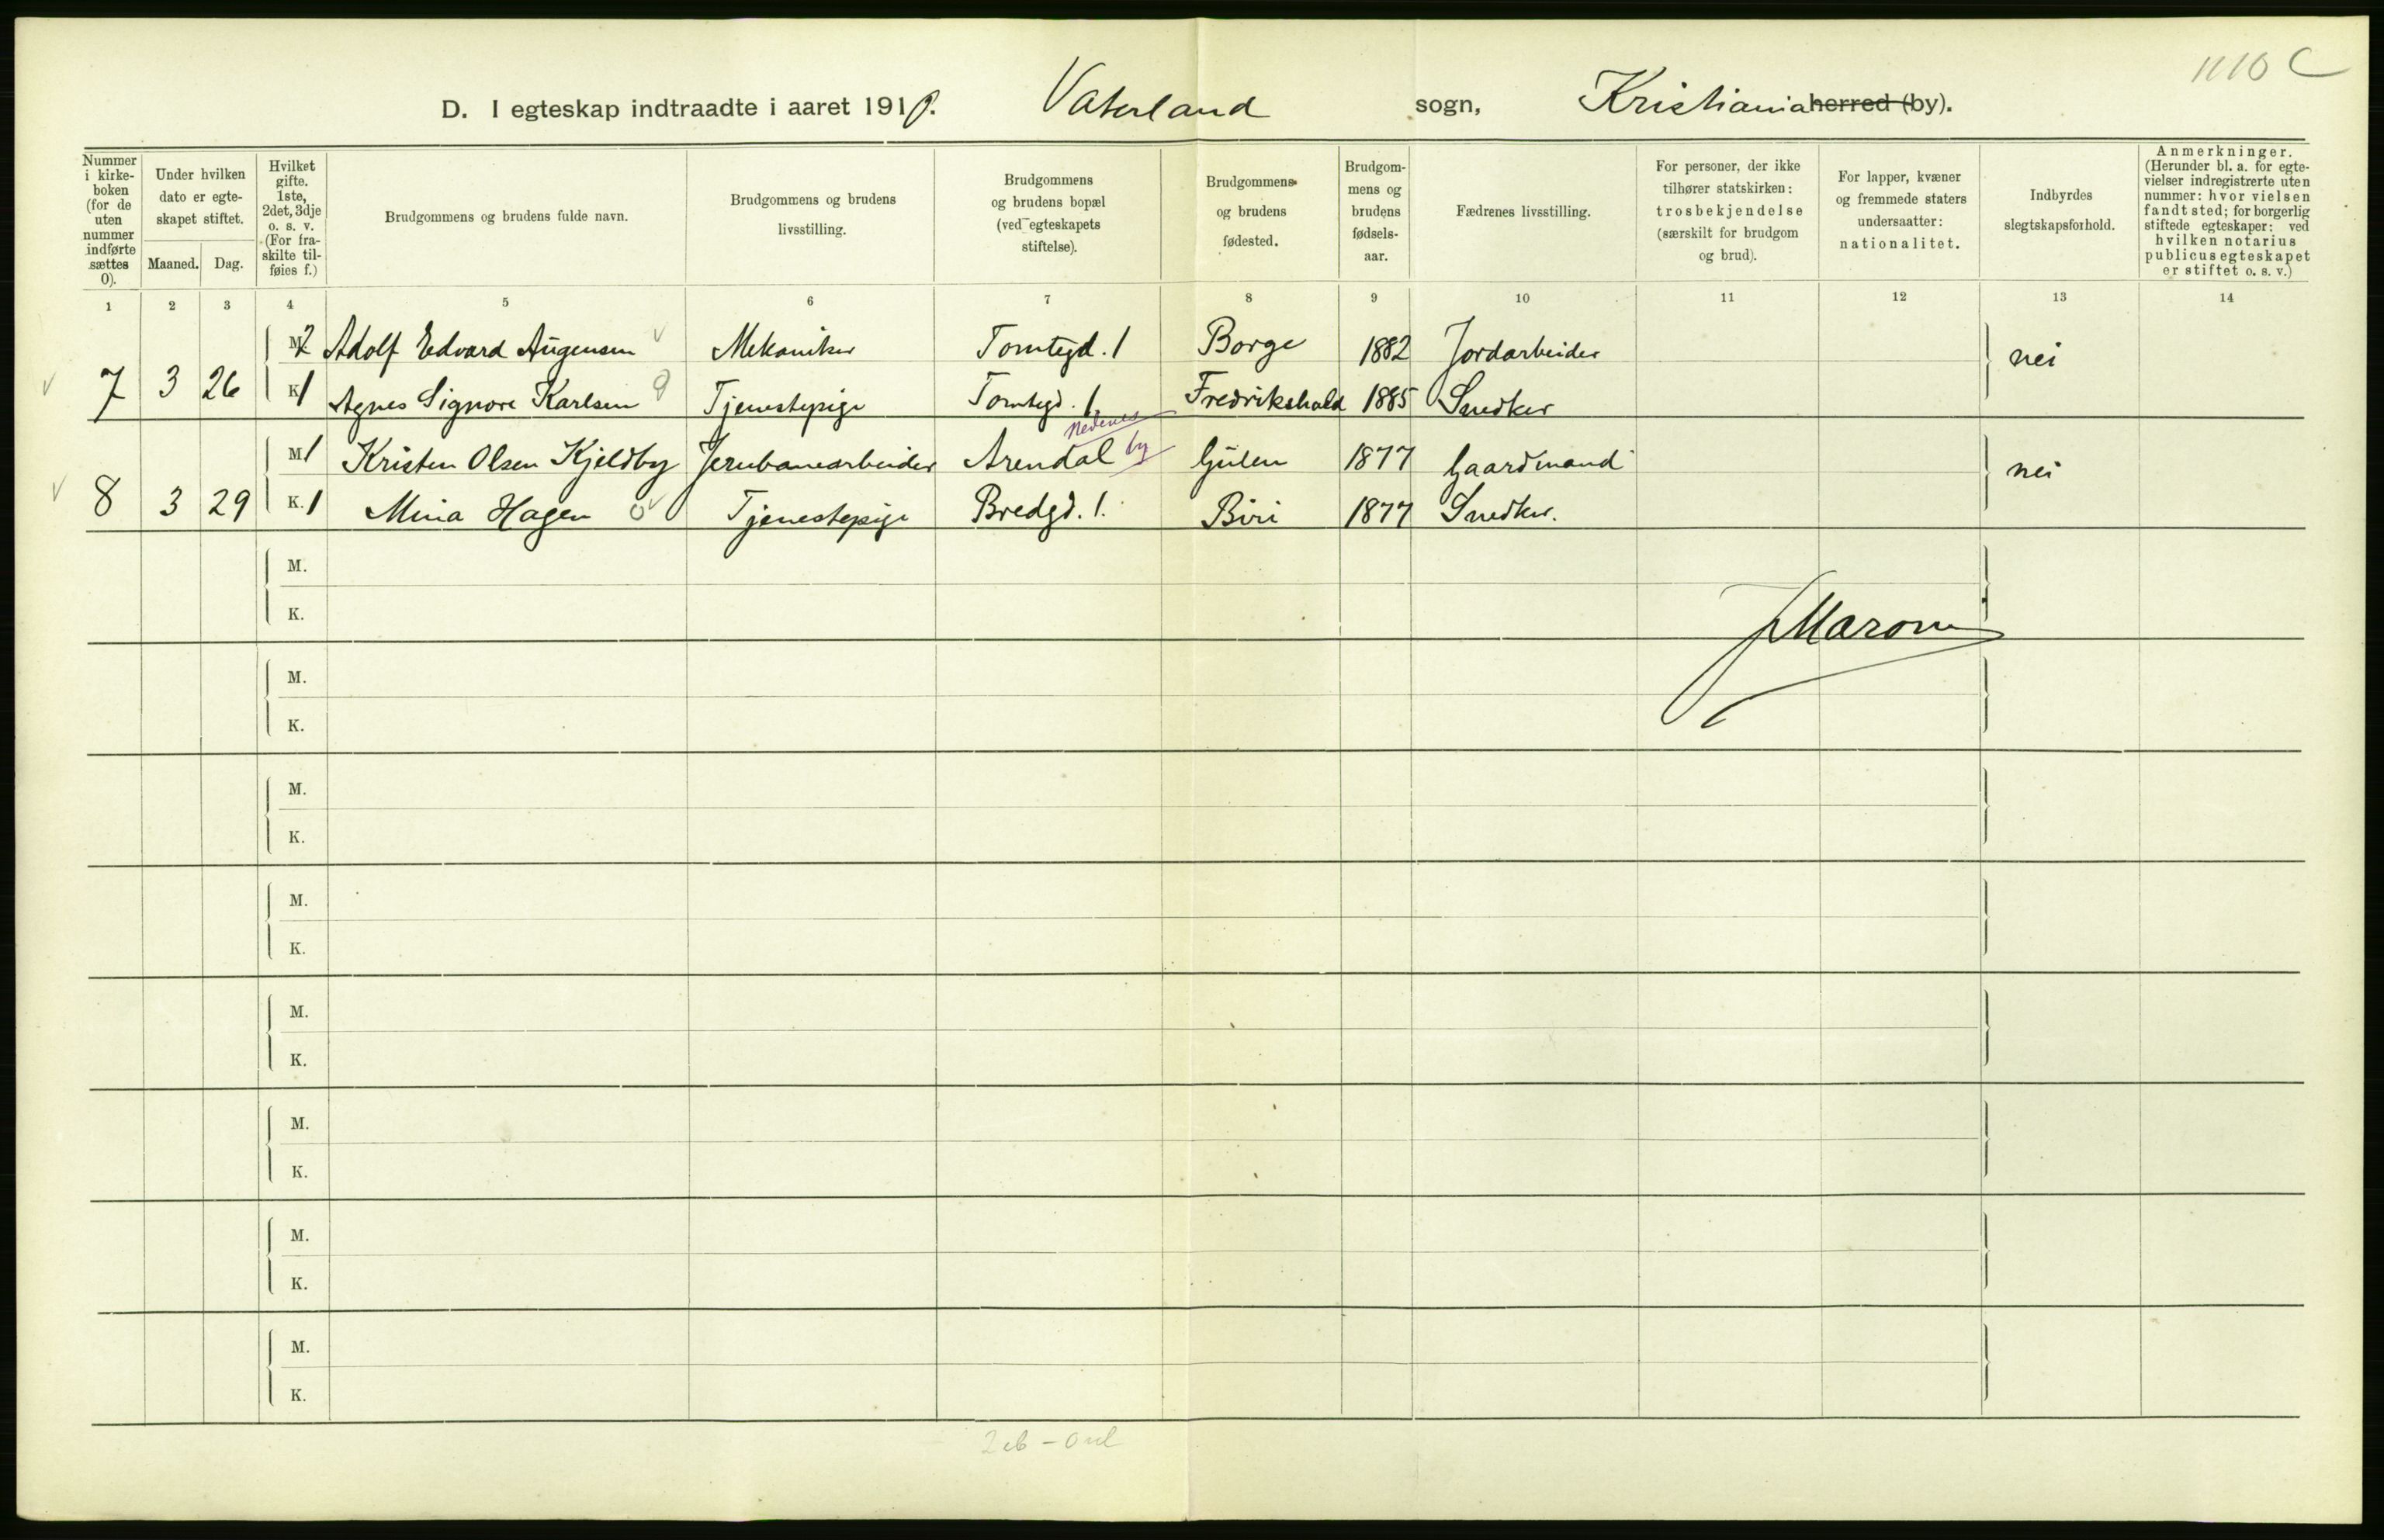 1110 C
D. I egteskap indtraadte i aaret 1910. Vaterland sogn, Kristiania herred (by).
Nummer i kirke-boken (for de uten nummer indførte sættes 0).
Under hvilken dato er egte-skapet stiftet.
Maaned. Dag.
Hvilket gifte. 1ste, 2det, 3dje o. s. v. (For fra-skilte til-føies f.)
Brudgommens og brudens fulde navn.
Brudgommens og brudens livsstilling.
Brudgommens og brudens bopæl (ved egteskapets stiftelse).
Brudgommens og brudens fødested.
Brudgom-mens og brudens fødsels-aar.
Fædrenes livsstilling.
For personer, der ikke tilhører statskirken: trosbekjendelse (særskilt for brudgom og brud).
For lapper, kvæner og fremmede staters undersaatter: nationalitet.
Indbyrdes slegtskapsforhold.
Anmerkninger. (Herunder bl. a. for egte-vielser indregistrerte uten nummer: hvor vielsen fandt sted; for borgerlig stiftede egteskaper: ved hvilken notarius publicus egteskapet er stiftet o. s. v.)
1 2 3 4 5 6 7 8 9 10 11 12 13 14
M. 2 Adolf Edvard Augensen Mekaniker Tomtegd. 1 Borge 1882 Jordarbeider nei
7 3 26 K 1 Agnes Signore Karlsen Tjenestepige Tomtegd. 1 Fredrikshald 1885 Snedker
Nedenes
M 1 Kristen Olsen Kjeldby Jernbanearbeider Arendal by Gulen 1877 Gaardmand nei
8 3 29 K. 1 Mina Hagen Tjenestepige Bredgd. 1. Biri 1877 Snedker.
M.
K.
JMarom
M.
K.
M.
K.
M.
K.
M.
K.
M.
K.
M.
K.
M.
K.